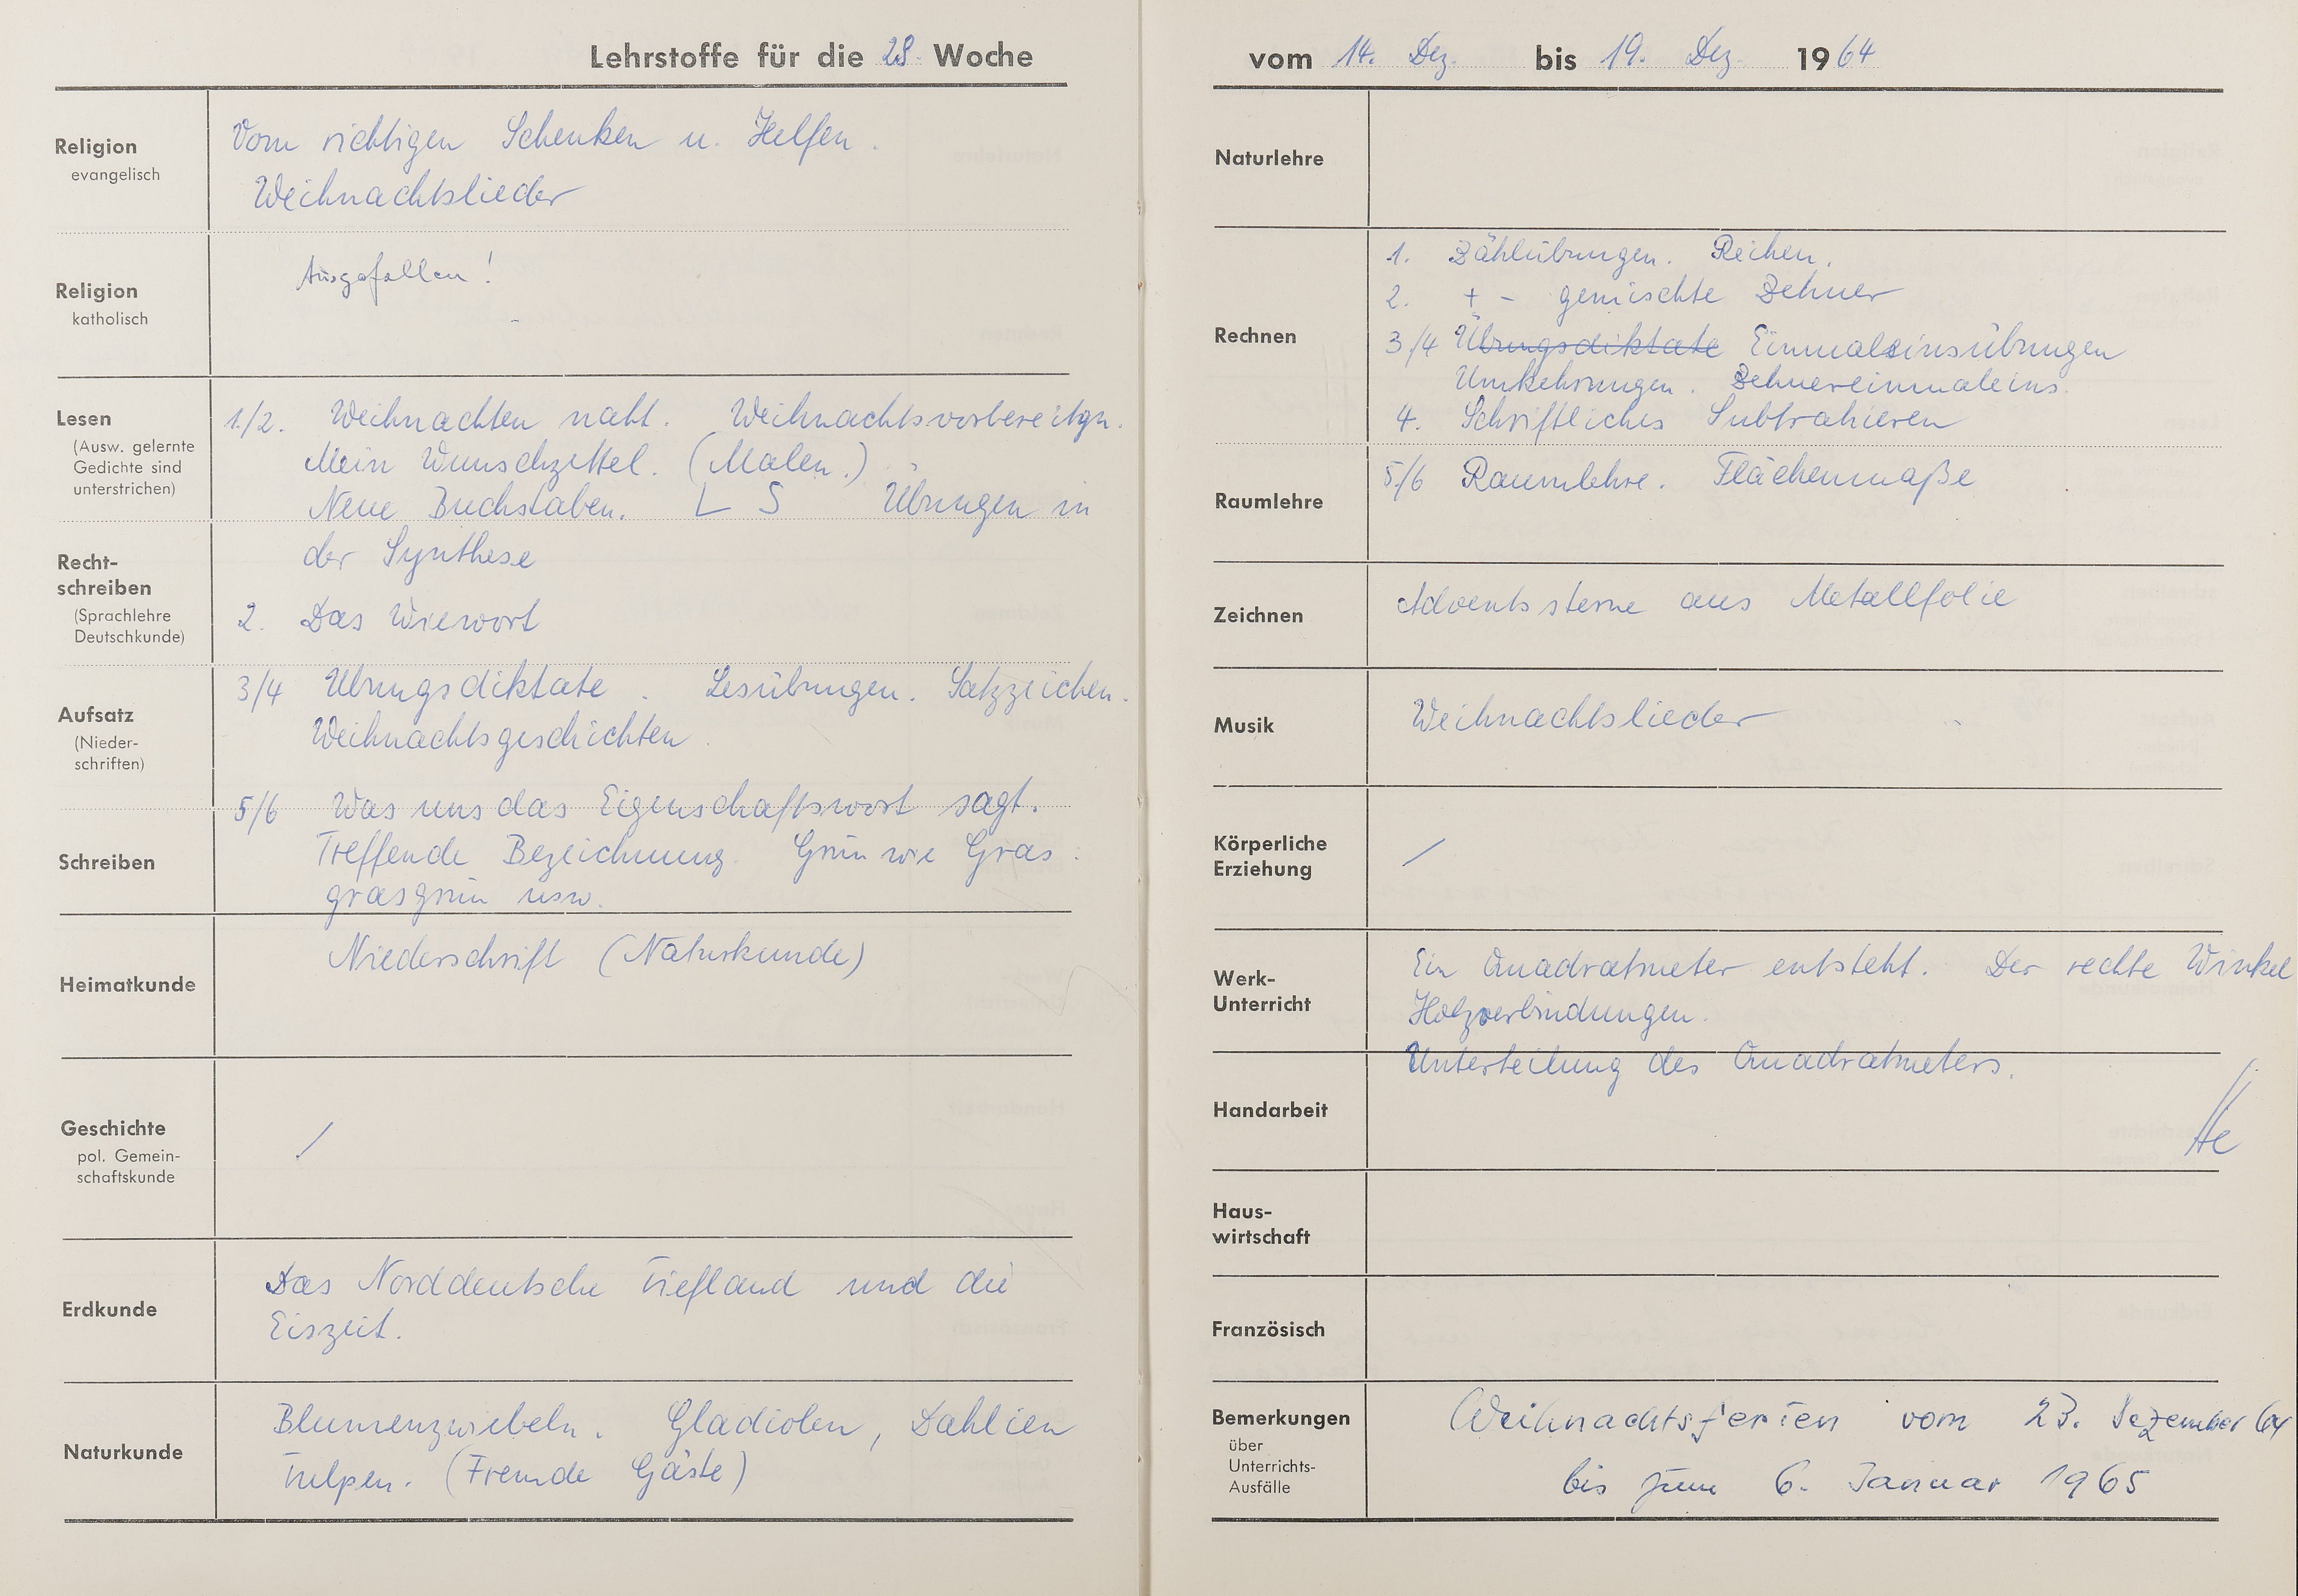 Lehrstoffe für die 28. Woche
Religion
evangelisch
Vom richtigen Schenken u. Helfen.
Weihnachtslieder
Religion
katholisch
Ausgefallen!
Lesen
(Ausw. gelernte
Gedichte sind
unterstrichen)
1./2. Weihnachten naht. Weihnachtsvorbereitgn.
Mein Wunschzettel. (Malen.)
Neue Buchstaben. L S Übungen in
der Synthese
Recht-
schreiben
(Sprachlehre
Deutschkunde)
2. Das Wiewort
Aufsatz
(Nieder-
schriften)
3/4 Übungsdiktate. Lesübungen. Satzzeichen.
Weihnachtsgeschichten.
5/6 Was uns das Eigenschaftswort sagt.
Treffende Bezeichnung. Grün wie Gras.
grasgrün usw.
Schreiben
Niederschrift (Naturkunde)
Heimatkunde
Geschichte
pol. Gemein-
schaftskunde
/
Erdkunde
Das Norddeutsche Tiefland und die
Eiszeit.
Naturkunde
Blumenzwiebeln. Gladiolen, Dahlien
Tulpen. (Fremde Gäste)
vom 14. Dez. bis 19. Dez. 1964
Naturlehre
Rechnen
1. Zählübungen. Reihen.
2. + - gemischte Zehner
3/4 Übungsdiktate Einmaleinsübungen
Umkehrungen. Zehnereinmaleins.
4. Schriftliches Subtrahieren
Raumlehre
5/6 Raumlehre. Flächenmaße
Zeichnen
Adventssterne aus Metallfolie
Musik
Weihnachtslieder
Körperliche
Erziehung
/
Werk-
Unterricht
Ein Quadratmeter entsteht. Der rechte Winkel
Holzverbindungen.
Unterteilung des Quadratmeters.
Handarbeit
Haus-
wirtschaft
Französisch
Bemerkungen
über
Unterrichts-
Ausfälle
Weihnachtsferien vom 23. Dezember 64
bis zum 6. Januar 1965